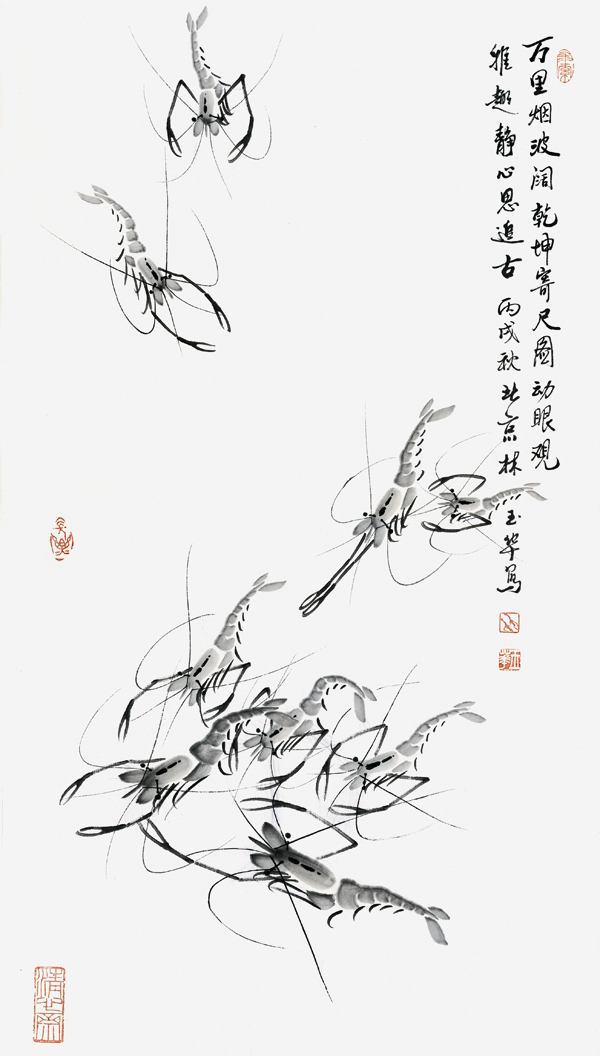 万里烟波阔乾坤寄尺图动眼观
雅趣静心思追古 丙戌秋北京林
玉华写